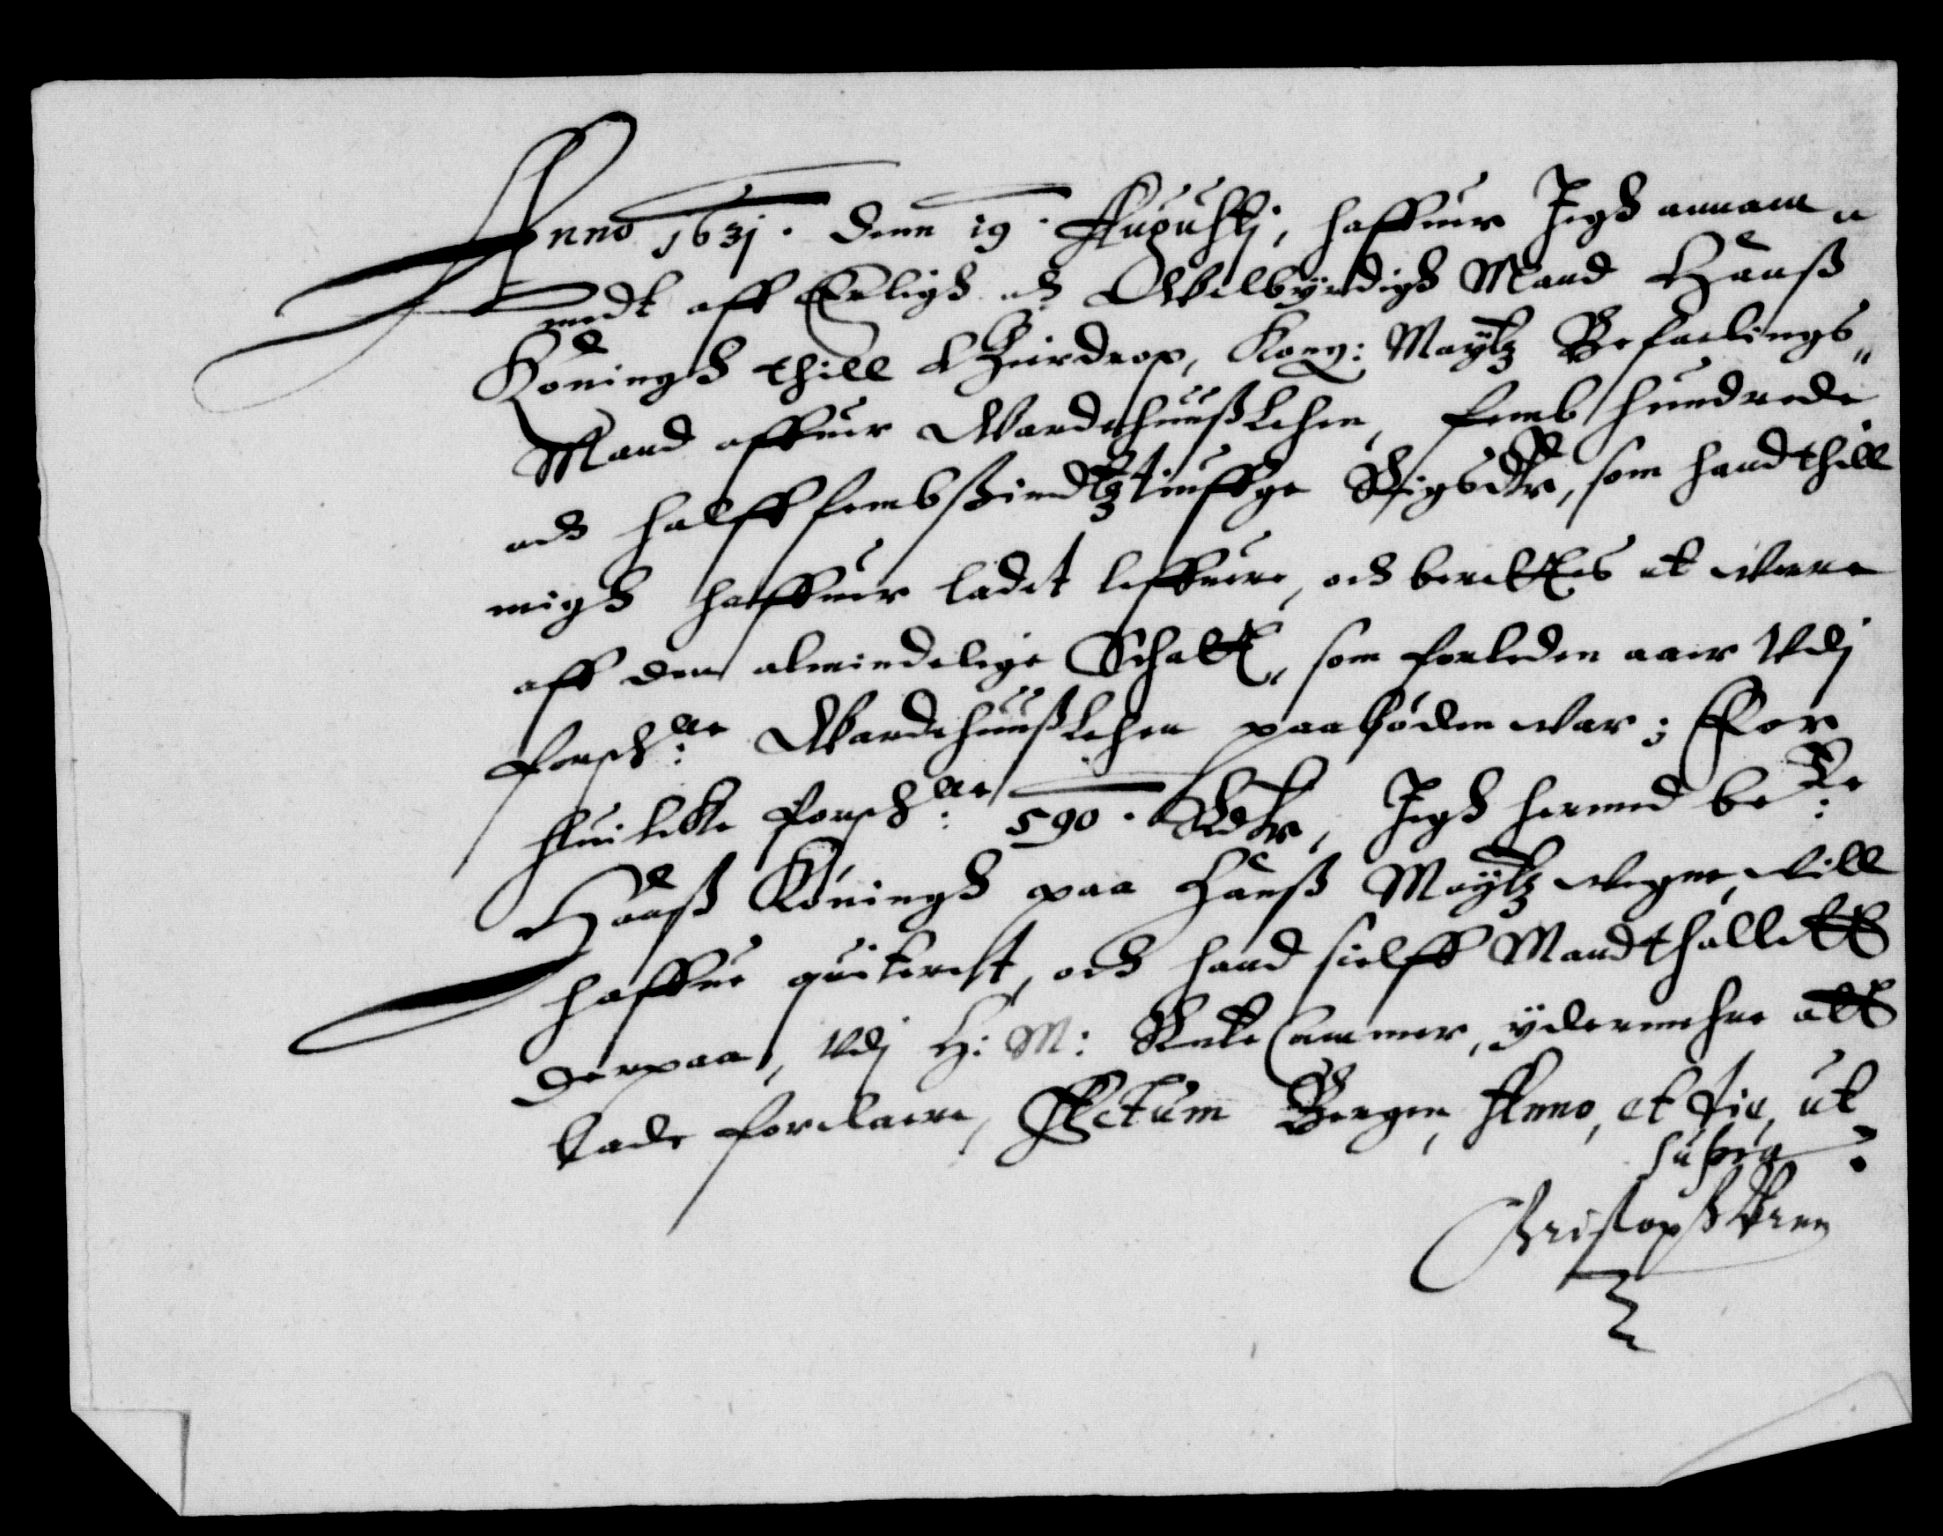 Anno 1631. Denn 19. Augustj, haffuer Jegh annam„
medt aff Erligh och Welbyrdigh Mand Hanß
Koningh thill Theirdrop, Kong: Maytz Befalings„
Mand offuer Wardehuuß Lehen, femb hundrede
och halff fembsindtztiuffge Rigsdlr, som hand thill
migh haffuer ladet leffuere, och berettes at were
aff den almindelige Schatt, som forleden aair Vdj
forschne: Wardehuuß Lehen paabøden war; Ffor
huilcke forschne: 590. Rdlr, Jegh hermed bete:
Hanß Koningh paa Hanß Maytz wegne, will
haffue quiterit, och hand sielff Mandthallett
derpaa, Vdj H: M: Rente Cammer, ydermehre att
lade forclare, Actum Bergen, Anno, et die, ut
supra.